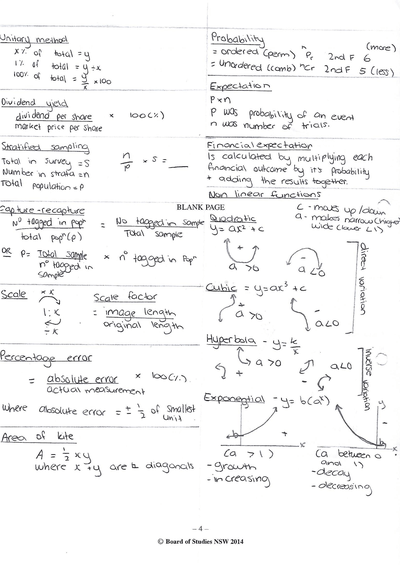 Unitary method
x% of total = y
1% of total = y ÷ x
100% of total = y/x × 100
Dividend yield
dividend per share / market price per share × 100(%)
Stratified sampling
Total in survey = S
Number in strata = n
Total population = P
n/P × S = ____
Capture-recapture
Nº tagged in popⁿ / total popⁿ (P) = No tagged in sample / Total sample
OR P = Total sample / nº tagged in sample × nº tagged in popⁿ
Scale
× k
1 : k
÷ k
Scale factor
= image length / original length
Percentage error
= absolute error / actual measurement × 100(%)
Where absolute error = ± 1/2 of smallest unit
Area of kite
A = 1/2 xy
where x + y are diagonals
BLANK PAGE
Probability
= ordered (perm) ⁿPr 2nd F 6 (more)
= unordered (comb) ⁿCr 2nd F 5 (less)
Expectation
P × n
P was probability of an event
n was number of trials.
Financial expectation
Is calculated by multiplying each
financial outcome by it's probability
+ adding the results together.
Non linear functions
c - moves up/down
a - makes narrow (higher)
wide (lower <1)
Quadratic
y = ax² + c
+
a > 0
-
a < 0
Cubic = y = ax³ + c
+
a > 0
-
a < 0
direct variation
Hyperbola - y = k/x
a > 0
+
a < 0
-
inverse variation
Exponential - y = b(aˣ)
b
x
(a > 1)
- growth
- increasing
b
x
(a between 0 and 1)
- decay
- decreasing
– 4 –
© Board of Studies NSW 2014